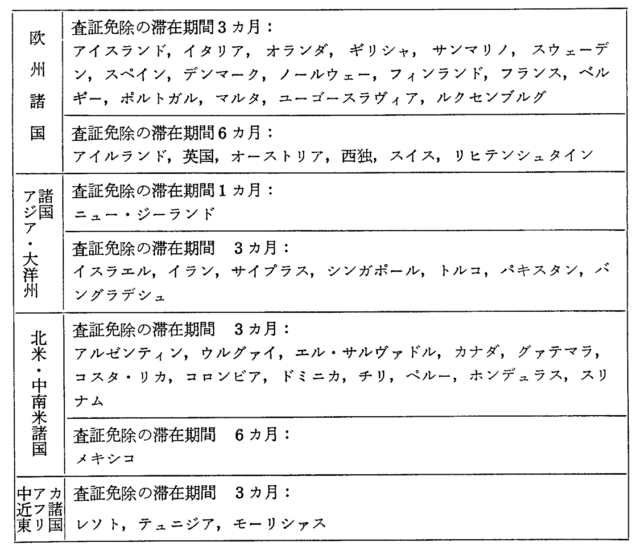 欧州諸国
査証免除の滞在期間3ヵ月：
アイスランド，イタリア，オランダ，ギリシャ，サンマリノ，スウェーデ
ン，スペイン，デンマーク，ノールウェー，フィンランド，フランス，ベル
ギー，ポルトガル，マルタ，ユーゴースラヴィア，ルクセンブルグ
査証免除の滞在期間6ヵ月：
アイルランド，英国，オーストリア，西独，スイス，リヒテンシュタイン
アジア・大洋州諸国
査証免除の滞在期間1ヵ月：
ニュー・ジーランド
査証免除の滞在期間　3ヵ月：
イスラエル，イラン，サイプラス，シンガポール，トルコ，パキスタン，バ
ングラデシュ
北米・中南米諸国
査証免除の滞在期間　3ヵ月：
アルゼンティン，ウルグァイ，エル・サルヴァドル，カナダ，グァテマラ，
コスタ・リカ，コロンビア，ドミニカ，チリ，ペルー，ホンデュラス，スリ
ナム
査証免除の滞在期間　6ヵ月：
メキシコ
中近東アフリカ諸国
査証免除の滞在期間　3ヵ月：
レソト，テュニジア，モーリシァス